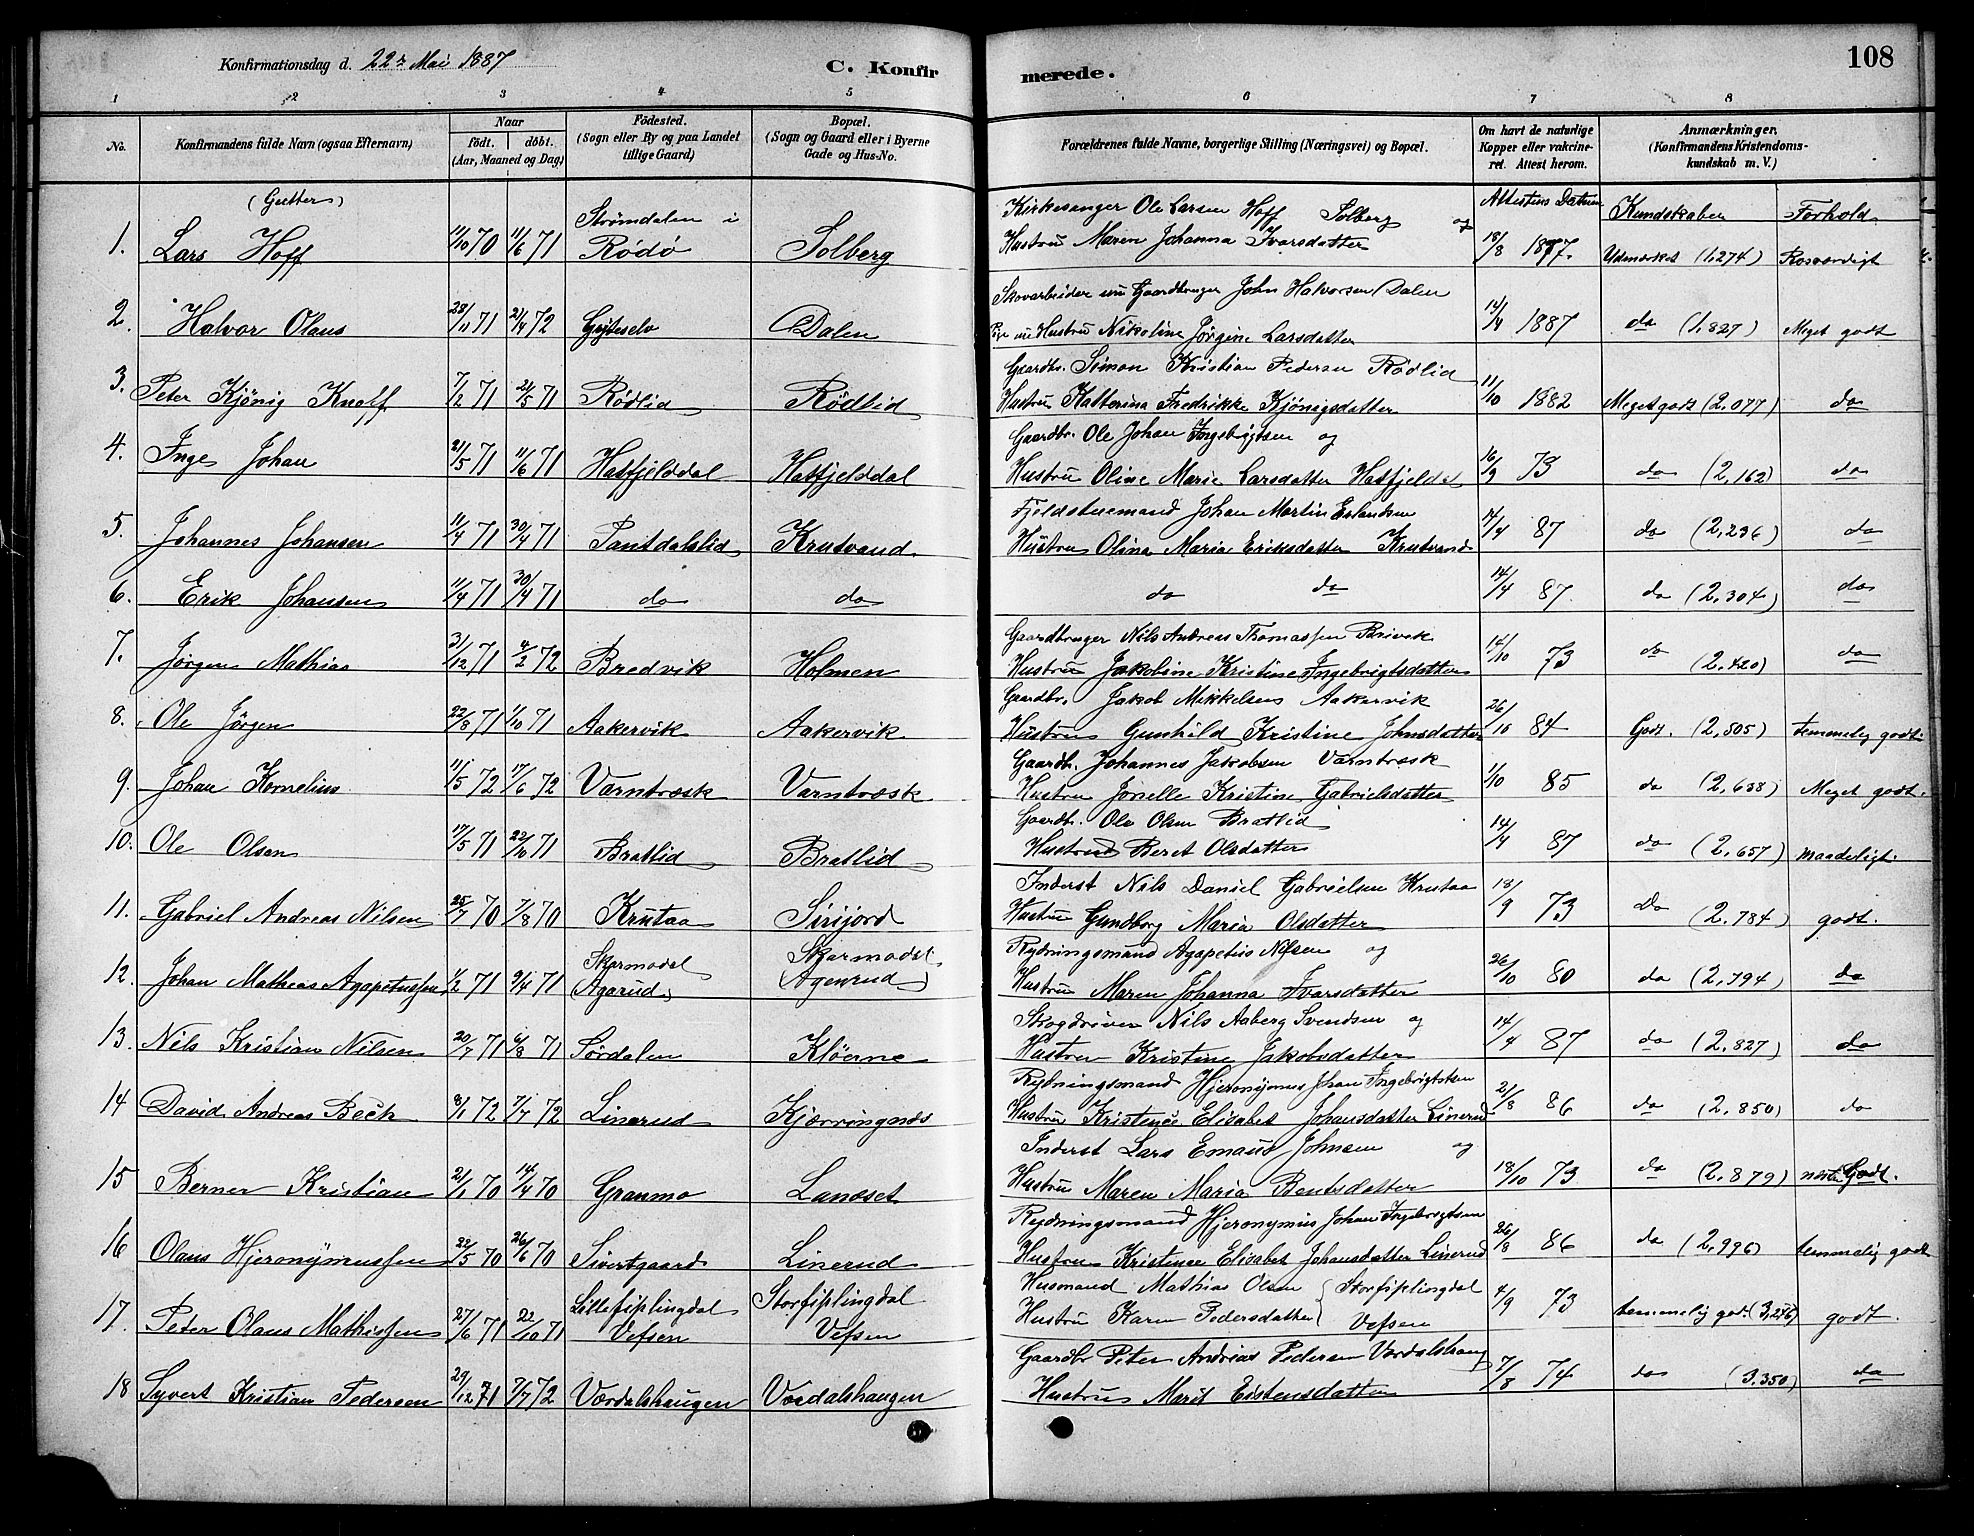 Konfirmationsdag d. 22de Mai 1887
C. Konfirmerede.
108
1 2 3 4 5 6 7 8
No.
Konfirmandens fulde Navn (ogsaa Efternavn)
Naar
födt. döbt.
(Aar, Maaned og Dag)
Födested.
(Sogn eller By og paa Landet
tillige Gaard)
Bopæl.
(Sogn og Gaard eller i Byerne
Gade og Hus-No.
Forældrenes fulde Navne, borgerlige Stilling (Næringsvei) og Bopæl.
Om havt de naturlige
Kopper eller vakcine-
ret. Attest herom.
Anmærkninger.
(Konfirmandens Kristendoms-
kundskab m. V.)
(Gutter) Strømdalen i Kirkesanger Ole Larsen Hoff Solberg og Attestens Datum Kundskaber Forhold
1. Lars Hoff 11/10 70 11/6 71 Rödö Solberg Hustru Maren Johanna Ivarsdatter 18/8 1877. Udmærket (1,274) Rosværdigt
Skovarbeider Gaardbruger John Halvorsen Dalen
2. Halvor Olaus 28/11 71 21/4 72 Dalen Hustru Nikoline Jörgine Larsdatter 14/4 1887 do (1,827) Meget godt
Gaardbr. Simon Kristian Pedersen Rödlid
3. Peter Kjönig Knoff 7/2 71 21/5 71 Rödlid Rödlid Hustru Katterina Fredrikke Kjönigsdatter 11/10 1882 Meget godt (2,077) do
Gaardbr. Ole Johan Ingebrigtsen og
4. Inge Johan 21/5 71 11/6 71 Hatfjelddal Hatfjelddal Hustru Oline Marie Larsdatter Hatfjeldd 16/9 73 do (2,162) do
Fjeldstuemand Johan Martin Erlandsen
5. Johannes Johansen 11/4 71 30/4 71 Tantdalslid Krutvand Hustru Olina Maria Eriksdatter Krutvand 14/4 87 do (2,236) do
6. Erik Johansen 11/4 71 30/4 71 do do do do 14/4 87. do (2,304) do
Gaardbruger Nils Andreas Thomassen Brivik
7. Jörgen Mathias 31/12 71 4/2 72 Bredvik Holmen Hustru Jakobine Kristine Ingebrigtsdatter 14/10 73 do (2,420) do
Gaardbr. Jakob Mikkelsen Aakervik
8. Ole Jörgen 22/8 71 1/10 71 Aakervik Aakervik Hustru Gunhild Kristine Johnsdatter 26/10 84 Godt. (2,505) temmelig godt
Gaardb. Johannes Jakobsen Varntræsk
9. Johan Kornelius 11/5 72 17/6 72 Varntræsk Varntræsk Hustru Jörielle Kristine Gabrielsdatter 1/10 85 do (2,638) Meget godt.
Gaardb. Ole Olsen Bratlid
10. Ole Olsen 17/5 71 22/10 71 Bratlid Bratlid Hustru Beret Olsdatter 14/4 87 do (2,657) maadeligt.
Inderst Nils Daniel Gabrielsen Krutaa
11. Gabriel Andreas Nilsen 25/7 70 7/8 70 Krutaa Sirijord Hustru Gundborg Maria Olsdatter 18/9 73 Do (2,784) godt.
Skarmodal Skarmodal Rydningsmand Agapetus Nilsen og
12. Johan Mathias Agapetussen 1/2 71 9/4 71 (Agarud) (Agenrud) Hustru Maren Johanna Ivarsdatter 26/10 80 do (2,794) do
Skogdriver Nils Aaberg Svendsen og
13. Nils Kristian Nilsen 20/7 71 6/8 71 Sördalen Klöerne Hustru Kristine Jakobsdatter 14/4 87 do (2,827) do
Rydningsmand Hjeronymus Johan Ingebrigtsen
14 David Andreas Beck 8/1 72 7/7 72 Linerud Kjærringnæs Hustru Kristence Elisabet Johansdatter Linerud 21/8 86 do (2,850) do
Inderst Lars Emaus Johnsen og
15 Berner Kristian 21/1 70 14/4 70 Granmo Landset Hustru Maren Maria Bentsdatter 18/10 73 do (2,879) Godt.
Rydningsmand Hjeronymus Johan Ingebrigtsen
16 Olaus Hjeronymussen 22/5 70 26/6 70 Sivertgaard Linerud Hustru Kristence Elisabet Johansdatter Linerud 26/8 86 do (2,996) temmelig godt
Lillefiplingdal Storfiplingdal Husmand Mathias Olsen Storfiplingdal
17. Peter Olaus Mathissen 27/6 71 22/10 71 Vefsen Vefsen Hustru Karen Pedersdatter Vefsen 4/9 73 temmelig god. (3,256) godt.
Gaardbr Peter Andreas Pedersen Vordalshaug
18 Syvert Kristian Pedersen 29/12 71 7/7 72 Værdalshaugen Værdalshaugen Hustru Marit Eistensdatter 7/8 74 do (3,350) do